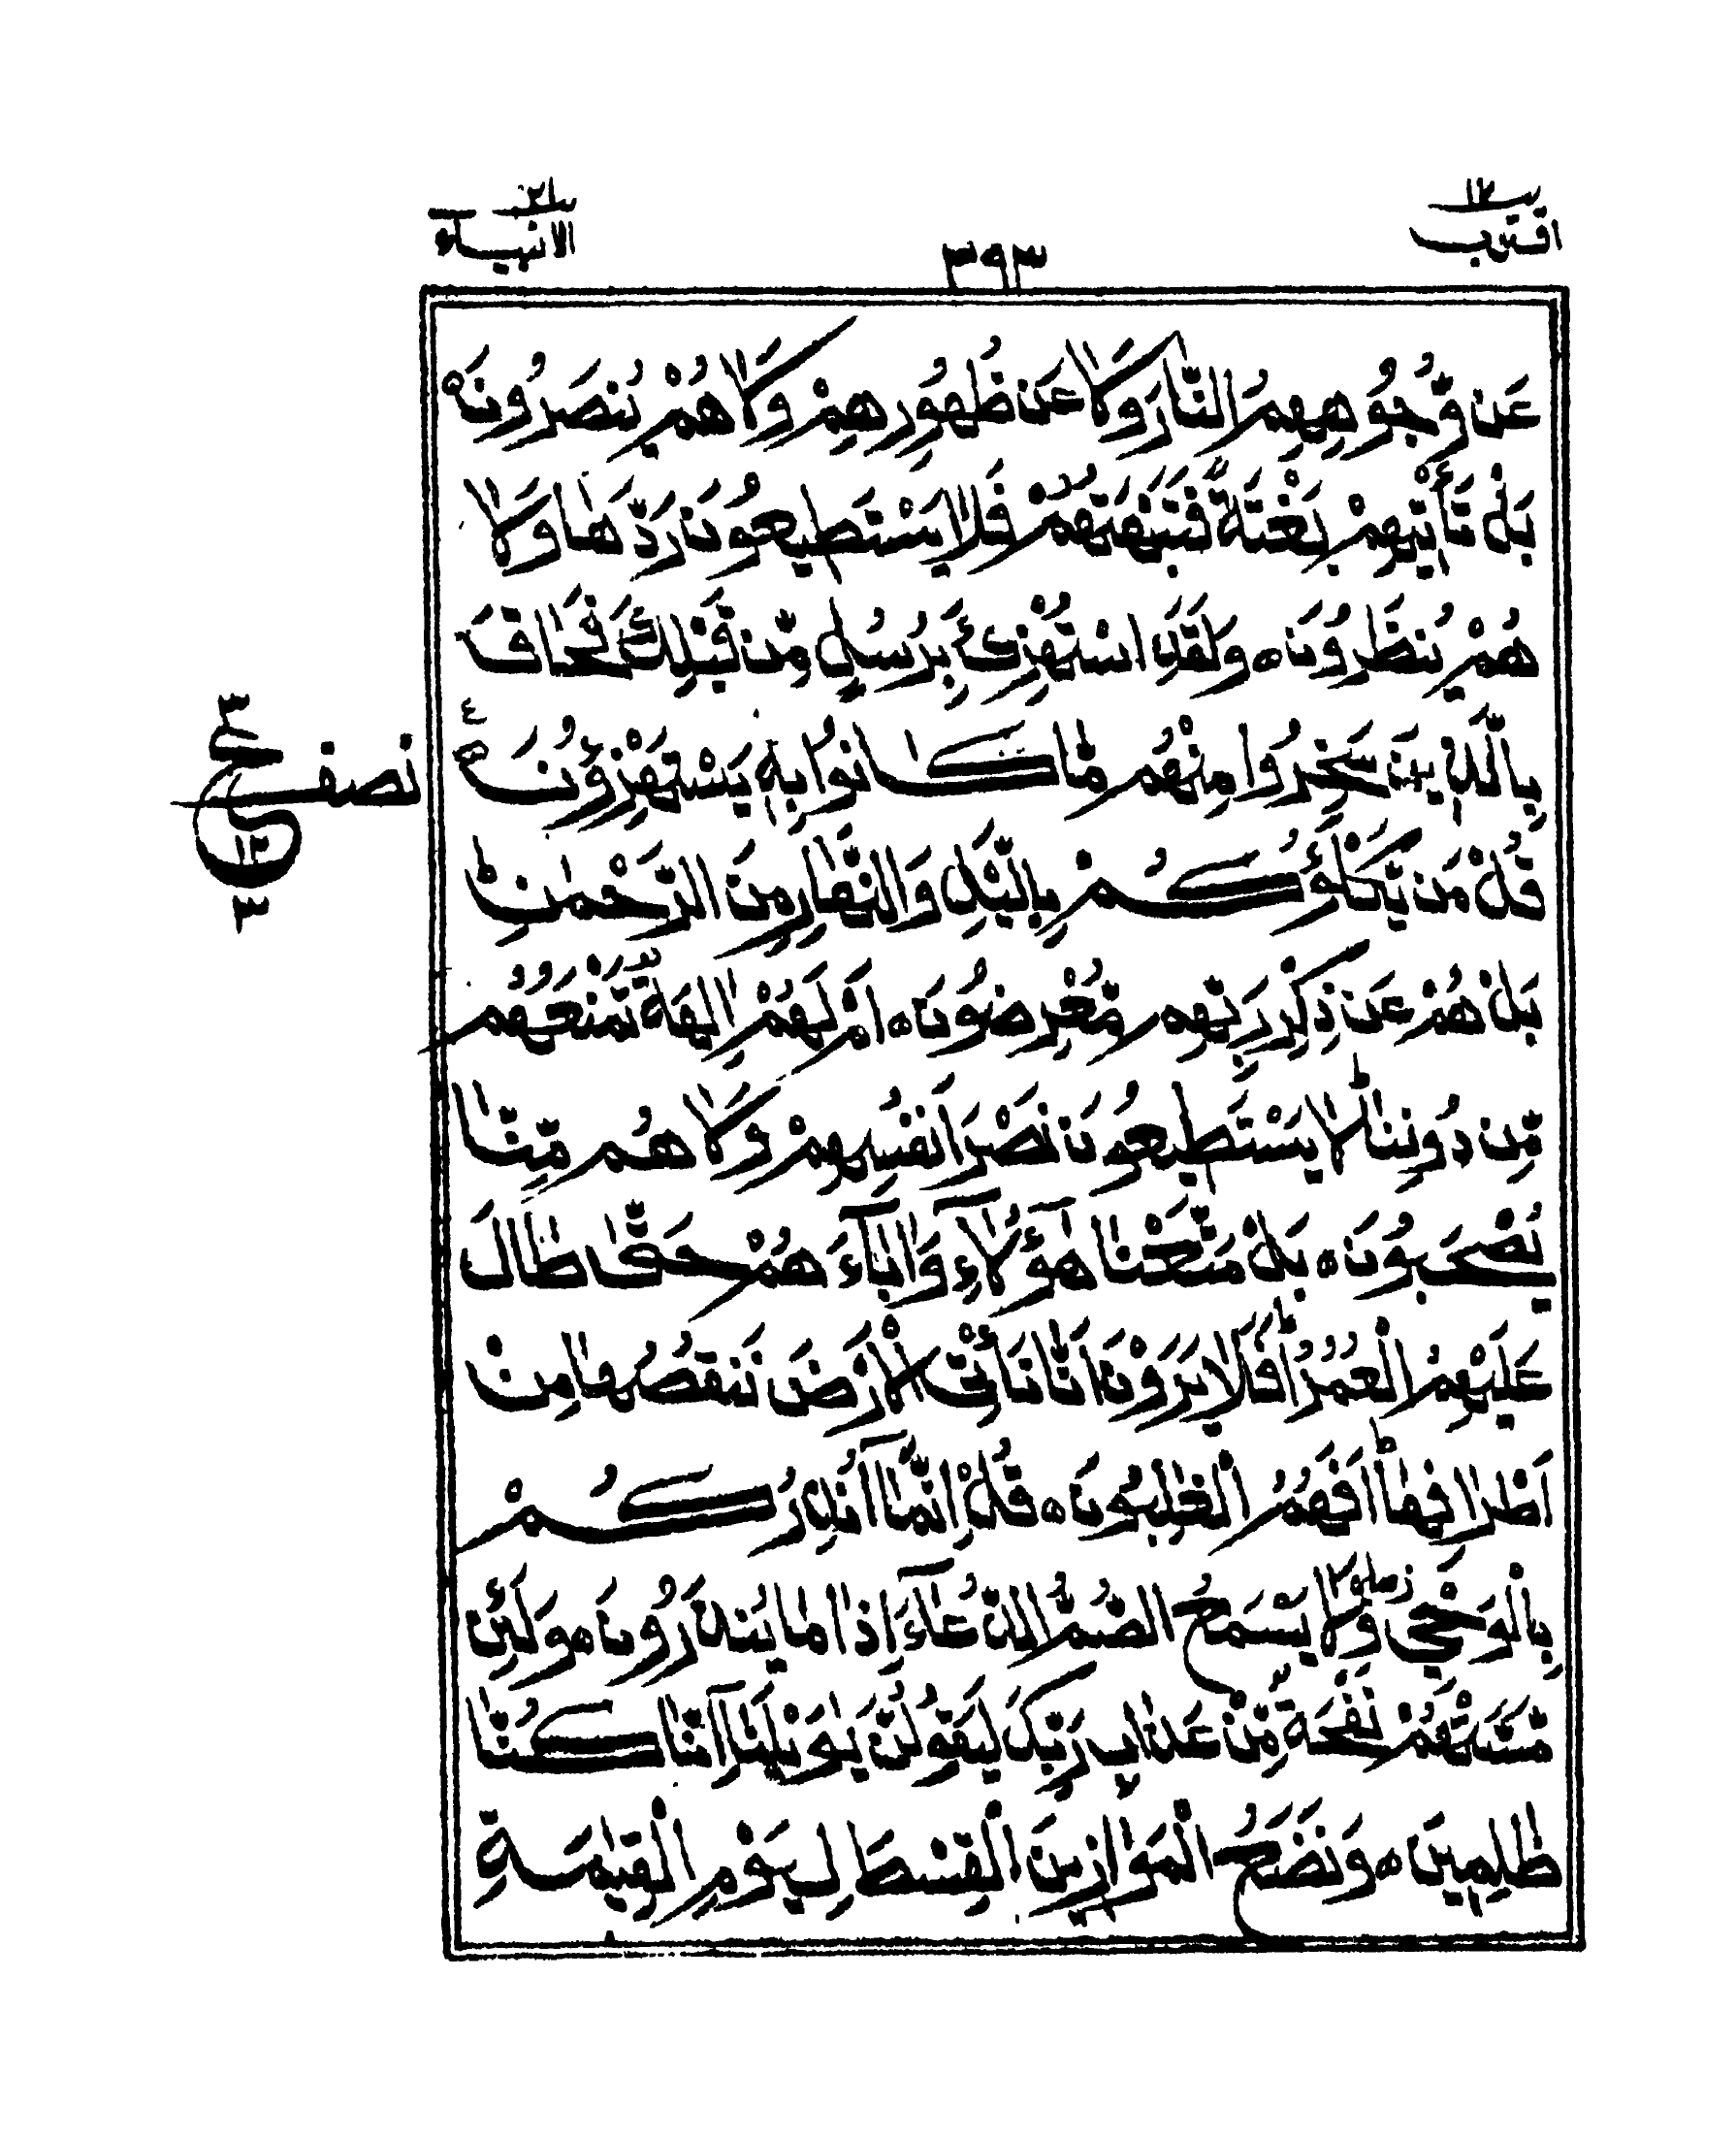 اقترب ١٧
٣٩٣
الانبیاء ٢١
عَن وُّجُوْهِهِمُ النَّارَ وَلَا عَن ظُهُوْرِهِمْ وَلَا هُمْ يُنصَرُوْنَ ٥
بَلْ تَأْتِيْهِمْ بَغْتَةً فَتَبْهَتُهُمْ فَلَا يَسْتَطِيْعُوْنَ رَدَّهَا وَلَا
هُمْ يُنظَرُوْنَ ٥ وَلَقَدِ اسْتُهْزِئَ بِرُسُلٍ مِّن قَبْلِكَ فَحَاقَ
بِالَّذِيْنَ سَخِرُوْا مِنْهُم مَّا كَانُوْا بِهٖ يَسْتَهْزِءُوْنَ ٥ع
نصف
٣
ع
١٢
٣
قُلْ مَن يَّكْلَؤُكُمْ بِالَّيْلِ وَالنَّهَارِ مِنَ الرَّحْمٰنِ ط
بَلْ هُمْ عَن ذِكْرِ رَبِّهِم مُّعْرِضُوْنَ ٥ اَمْ لَهُمْ اٰلِهَةٌ تَمْنَعُهُم
مِّن دُوْنِنَا ط لَا يَسْتَطِيْعُوْنَ نَصْرَ اَنفُسِهِمْ وَلَا هُم مِّنَّا
يُصْحَبُوْنَ ٥ بَلْ مَتَّعْنَا هٰٓؤُلَآءِ وَاٰبَآءَهُمْ حَتّٰى طَالَ
عَلَيْهِمُ الْعُمُرُ ط اَفَلَا يَرَوْنَ اَنَّا نَأْتِى الْاَرْضَ نَنقُصُهَا مِنْ
اَطْرَافِهَا ط اَفَهُمُ الْغٰلِبُوْنَ ٥ قُلْ اِنَّمَآ اُنذِرُكُمْ
بِالْوَحْيِ زصلے وَلَا يَسْمَعُ الصُّمُّ الدُّعَآءَ اِذَا مَا يُنذَرُوْنَ ٥ وَلَئِن
مَّسَّتْهُمْ نَفْحَةٌ مِّنْ عَذَابِ رَبِّكَ لَيَقُوْلُنَّ يٰوَيْلَنَآ اِنَّا كُنَّا
ظٰلِمِيْنَ ٥ وَنَضَعُ الْمَوَازِيْنَ الْقِسْطَ لِيَوْمِ الْقِيٰمَةِ